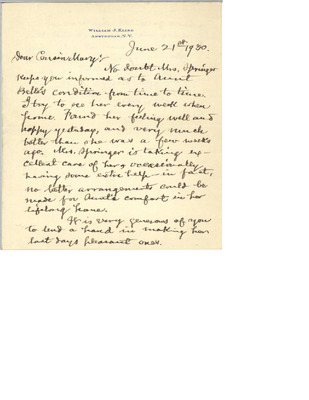 WILLIAM J. KLINE
AMSTERDAM, N.Y.
June 21st 1930.
Dear Cousin Mary:
No doubt Mrs. Springer
keeps you informed as to Aunt
Belle's condition from time to time.
I try to see her every week when
home. Found her feeling well and
happy yesterday, and very much
better than she was a few weeks
ago. Mrs. Springer is taking ex-
cellent care of her, occasionally
having some extra help in fact,
no better arrangements could be
made for Aunt's comfort in her
lifelong home.
It is very generous of you
to lend a hand in making her
last days pleasant ones.